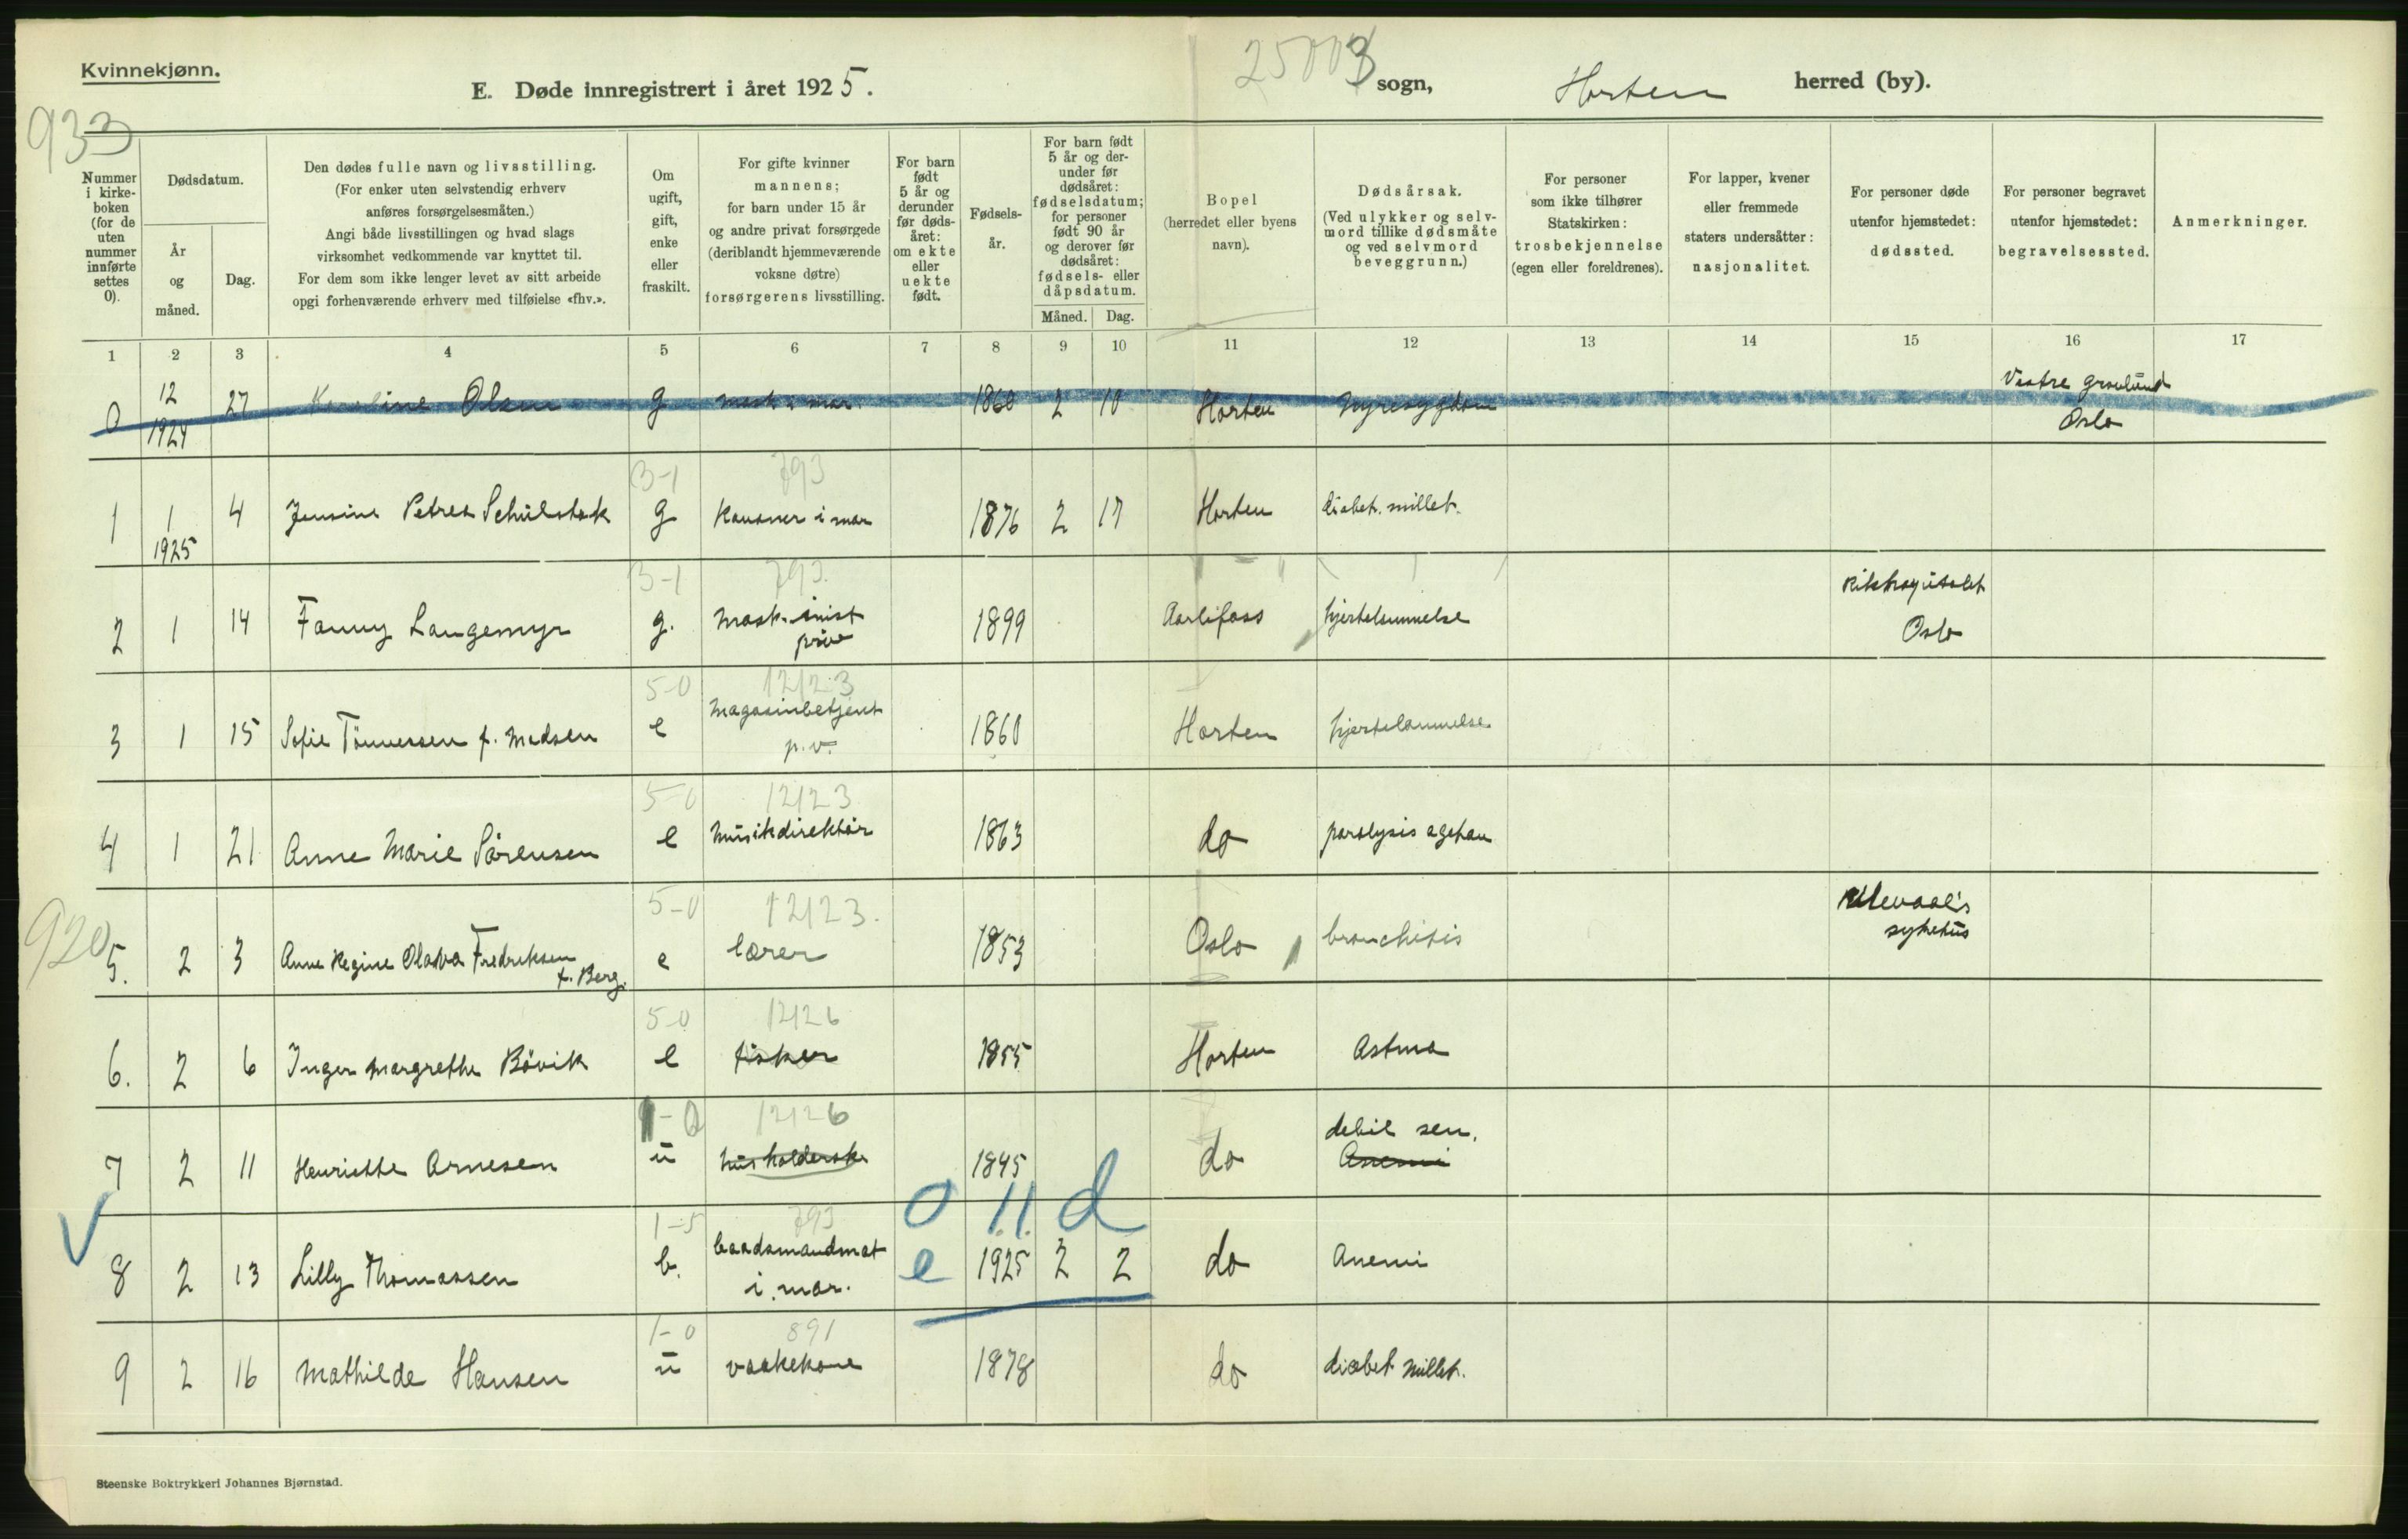 Kvinnekjønn.
E. Døde innregistrert i året 1925.
25003 sogn, Horten herred (by).
933
Nummer i kirkeboken (for de uten nummer innførte settes 0).
Dødsdatum.
År og måned.
Dag.
Den dødes fulle navn og livsstilling.
(For enker uten selvstendig erhverv
anføres forsørgelsesmåten.)
Angi både livsstillingen og hvad slags
virksomhet vedkommende var knyttet til.
For dem som ikke lenger levet av sitt arbeide
opgi forhenværende erhverv med tilføielse «fhv.».
Om ugift, gift, enke eller fraskilt.
For gifte kvinner
mannens;
for barn under 15 år
og andre privat forsørgede
(deriblandt hjemmeværende
voksne døtre)
forsørgerens livsstilling.
For barn født 5 år og derunder før dødsåret: om ekte eller uekte født.
Fødselsår.
For barn født 5 år og derunder før dødsåret: fødselsdatum; for personer født 90 år og derover før dødsåret: fødsels- eller dåpsdatum.
Måned. Dag.
Bopel
(herredet eller byens
navn).
Dødsårsak.
(Ved ulykker og selvmord tillike dødsmåte og ved selvmord beveggrunn.)
For personer
som ikke tilhører
Statskirken:
trosbekjennelse
(egen eller foreldrenes).
For lapper, kvener
eller fremmede
staters undersåtter:
nasjonalitet.
For personer døde
utenfor hjemstedet:
dødssted.
For personer begravet
utenfor hjemstedet:
begravelsessted.
Anmerkninger.
1 2 3 4 5 6 7 8 9 10 11 12 13 14 15 16 17
0 12 1924 27 Karoline Olsen g mask i mar. 1860 2 10 Horten Nyresygdom Vestre gravlund Oslo
3-1 793
1 1 1925 4 Jensine Petrea Schulstok g i mar 1876 2 17 Horten diabet. millet.
3-1 793.
2 1 14 Fanny Langemyr g. mask.inist priv 1899 hjertelammelse Rikshospitalet Oslo
5-0 12123
3 1 15 Sofie Tönnessen f. Madsen e Magasinbetjent p.v. 1860 Horten hjertelammelse
5-0 12123
4 1 21 Anne Marie Sörensen e musikdirektör 1863 do paralysis agitan
920
5-0 12123.
5. 2 3 Anne Regine Olava Fredriksen f. Berg. e lærer 1853 Oslo bronchitis Ullevaal's sykehus
5-0 12126
6. 2 6 Inger Margrethe Bövik e fisker 1855 Horten Astma
1-0 12126
7 2 11 Henriette Arnesen u husholderske 1845 do debil sen. Anemi
0 11 d
1-5 793
8 2 13 Lilly Thomassen b. baadsmandmat i. mar. e 1925 2 2 do Anemi
1-0 891
9 2 16 Mathilde Hansen u vaakekone 1878 do diabet millet.
Steenske Boktrykkeri Johannes Bjørnstad.